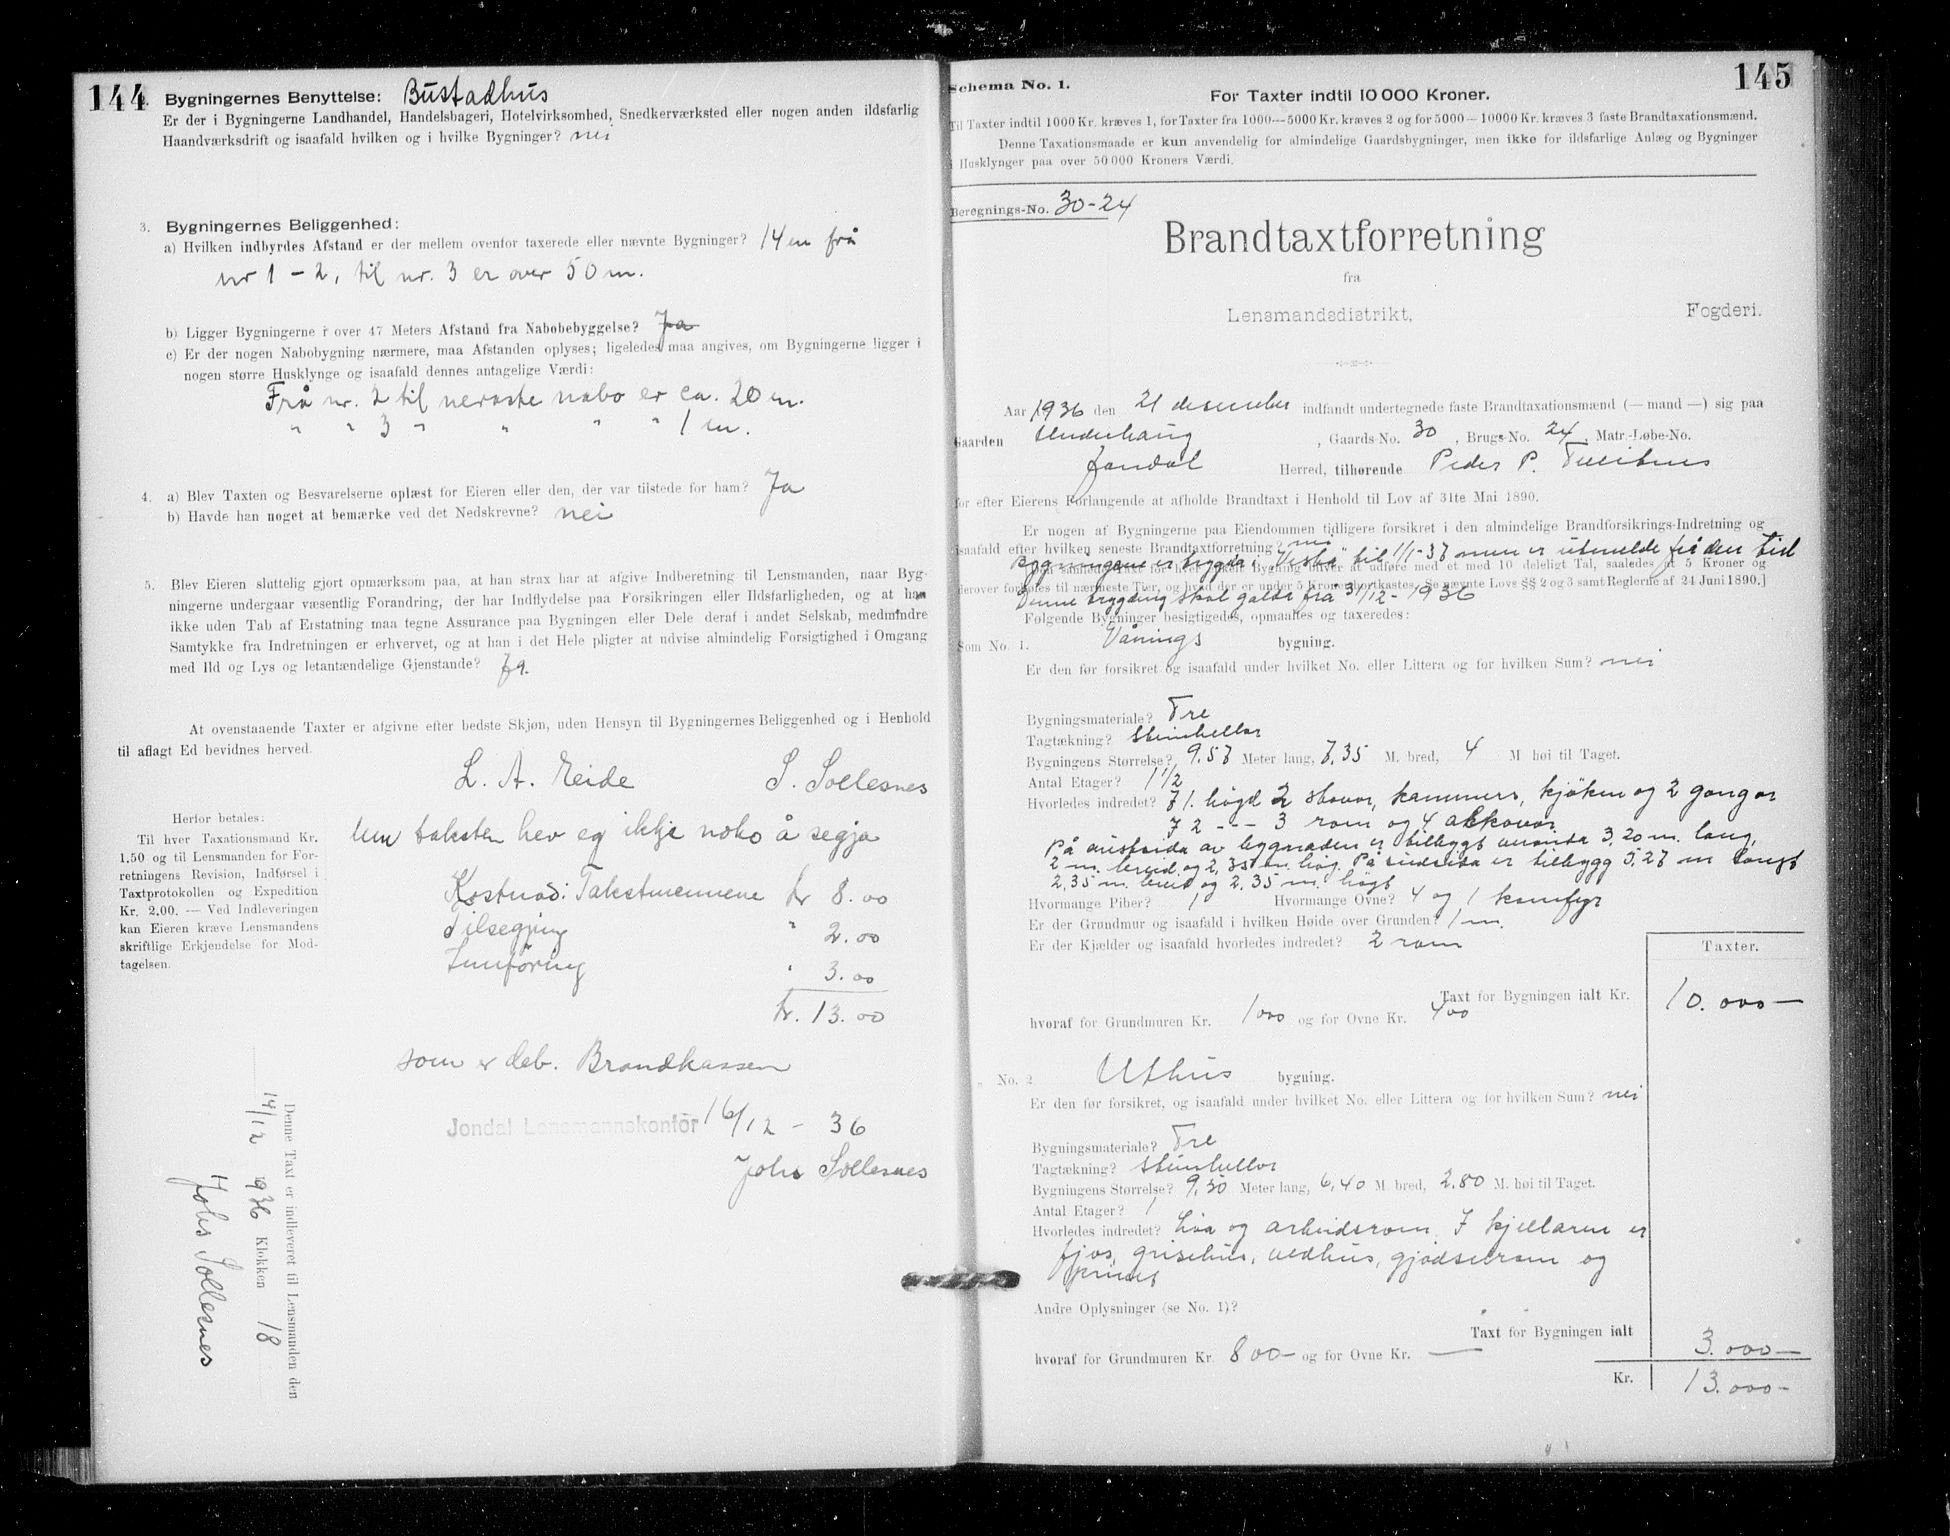 144
2. Bygningernes Benyttelse: Bustadhus
Er der i Bygningerne Landhandel, Handelsbageri, Hotelvirksomhed, Snedkerværksted eller nogen anden ildsfarlig
Haandværksdrift og isaafald hvilken og i hvilke Bygninger? nei
3. Bygningernes Beliggenhed:
a) Hvilken indbyrdes Afstand er der mellem ovenfor taxerede eller nævnte Bygninger? 14 m frå
nr 1 - 2, til nr. 3 er over 50 m.
b) Ligger Bygningerne i over 47 Meters Afstand fra Nabobebyggelse? Ja
c) Er der nogen Nabobygning nærmere, maa Afstanden oplyses; ligeledes maa angives, om Bygningerne ligger i
nogen større Husklynge og isaafald dennes antagelige Værdi:
Frå nr. 2 til neraste nabo er ca. 20 m.
" " 3 " " " " 1 m.
4. a) Blev Taxten og Besvarelserne oplæst for Eieren eller den, der var tilstede for ham? Ja
b) Havde han noget at bemærke ved det Nedskrevne? nei
5. Blev Eieren sluttelig gjort opmærksom paa, at han strax har at afgive Indberetning til Lensmanden, naar Byg-
ningerne undergaar væsentlig Forandring, der har Indflydelse paa Forsikringen eller Ildsfarligheden, og at han
ikke uden Tab af Erstatning maa tegne Assurance paa Bygningen eller Dele deraf i andet Selskab, medmindre
Samtykke fra Indretningen er erhvervet, og at han i det Hele pligter at udvise almindelig Forsigtighed i Omgang
med Ild og Lys og letantændelige Gjenstande? Ja.
At ovenstaaende Taxter er afgivne efter bedste Skjøn, uden Hensyn til Bygningernes Beliggenhed og i Henhold
til aflagt Ed bevidnes herved.
L. A. Eide S. Sollesnes
Um taksten hev eg ikkje noko å segja
Kostnad: Takstmennene kr 8.00
Tilsegjing " 2.00
Innföring " 3.00
kr. 13.00
som er deb. Brandkassen
Jondal Lensmannskontor 16/12 - 36
Johs Sollesnes
Herfor betales:
Til hver Taxationsmand Kr.
1.50 og til Lensmanden for For-
retningens Revision, Indførsel i
Taxtprotokollen og Expedition
Kr. 2.00. — Ved Indleveringen
kan Eieren kræve Lensmandens
skriftlige Erkjendelse for Mod-
tagelsen.
Denne Taxt er indleveret til Lensmanden den
14/12 1936 Klokken 18
Johs Sollesnes
145
Schema No. 1.
For Taxter indtil 10 000 Kroner.
Til Taxter indtil 1000 Kr. kræves 1, for Taxter fra 1000—5000 Kr. kræves 2 og for 5000—10000 Kr. kræves 3 faste Brandtaxationsmænd.
Denne Taxationsmaade er kun anvendelig for almindelige Gaardsbygninger, men ikke for ildsfarlige Anlæg og Bygninger
i Husklynger paa over 50 000 Kroners Værdi.
Beregnings-No. 30-24
Brandtaxtforretning
fra
Lensmandsdistrikt, Fogderi.
Aar 1936 den 21 desember indfandt undertegnede faste Brandtaxationsmænd (—mand—) sig paa
Gaarden Underhaug, Gaards-No. 30, Brugs-No. 24, Matr.-Løbe-No.
Jondal Herred, tilhørende Peder P.
for efter Eierens Forlangende at afholde Brandtaxt i Henhold til Lov af 31te Mai 1890.
Er nogen af Bygningerne paa Eiendommen tidligere forsikret i den almindelige Brandforsikrings-Indretning og
isaafald efter hvilken seneste Brandtaxtforretning? nei
Bygningane er trygda i "Vesta" til 1/1-37 men er utmelde frå den tid
derover forhøies til nærmeste Tier, og hvad der er under 5 Kroner bortkastes. Se nævnte Lovs §§ 2 og 3 samt Reglerne af 24 Juni 1890.]
Denne trygding skal gjelda frå 31/12 - 1936
Følgende Bygninger besigtigedes, opmaaltes og taxeredes:
Som No. 1. Vånings bygning.
Er den før forsikret og isaafald under hvilket No. eller Littera og for hvilken Sum? nei
Bygningsmateriale? Tre
Tagtækning? Steinhellor
Bygningens Størrelse? 9.57 Meter lang, 7,35 M. bred, 4 M høi til Taget.
Antal Etager? 1 1/2
Hvorledes indredet? I 1. högd 2 stovor, kammers, kjöken og 2 gangar
I 2 --- 3 rom og 4 alkovar
På austsida av bygnaden er tilbygt veranda 3,20 m. lang,
2 m. breid og 2,35 m. høg. På sudsida er tilbygg 5,27 m langt
2,35 m. breit og 2,35 m. høgt
Hvormange Piber? 1 Hvormange Ovne? 4 og 1 komfyr
Er der Grundmur og isaafald i hvilken Høide over Grunden? 1 m.
Er der Kjælder og isaafald hvorledes indredet? 2 rom
Taxter.
Taxt for Bygningen ialt Kr. 10.000—
hvoraf for Grundmuren Kr. 1000 og for Ovne Kr. 400
" No. 2 Uthus bygning.
Er den før forsikret, og isaafald under hvilket No. eller Littera og for hvilken Sum? nei
Bygningsmateriale? Tre
Tagtækning? Steinhellor
Bygningens Størrelse? 9,30 Meter lang, 6,40 M bred, 2.80 M. høi til Taget.
Antal Etager? 1
Hvorledes indredet? Löa og arbeidsrom. I kjellaren er
fjos, grisehus, vedhus, gjödselrom og
Andre Oplysninger (se No. 1)?
Taxt for Bygningen ialt 3.000—
hvoraf for Grundmuren Kr. 800— og for Ovne Kr. —
Kr. 13.000-